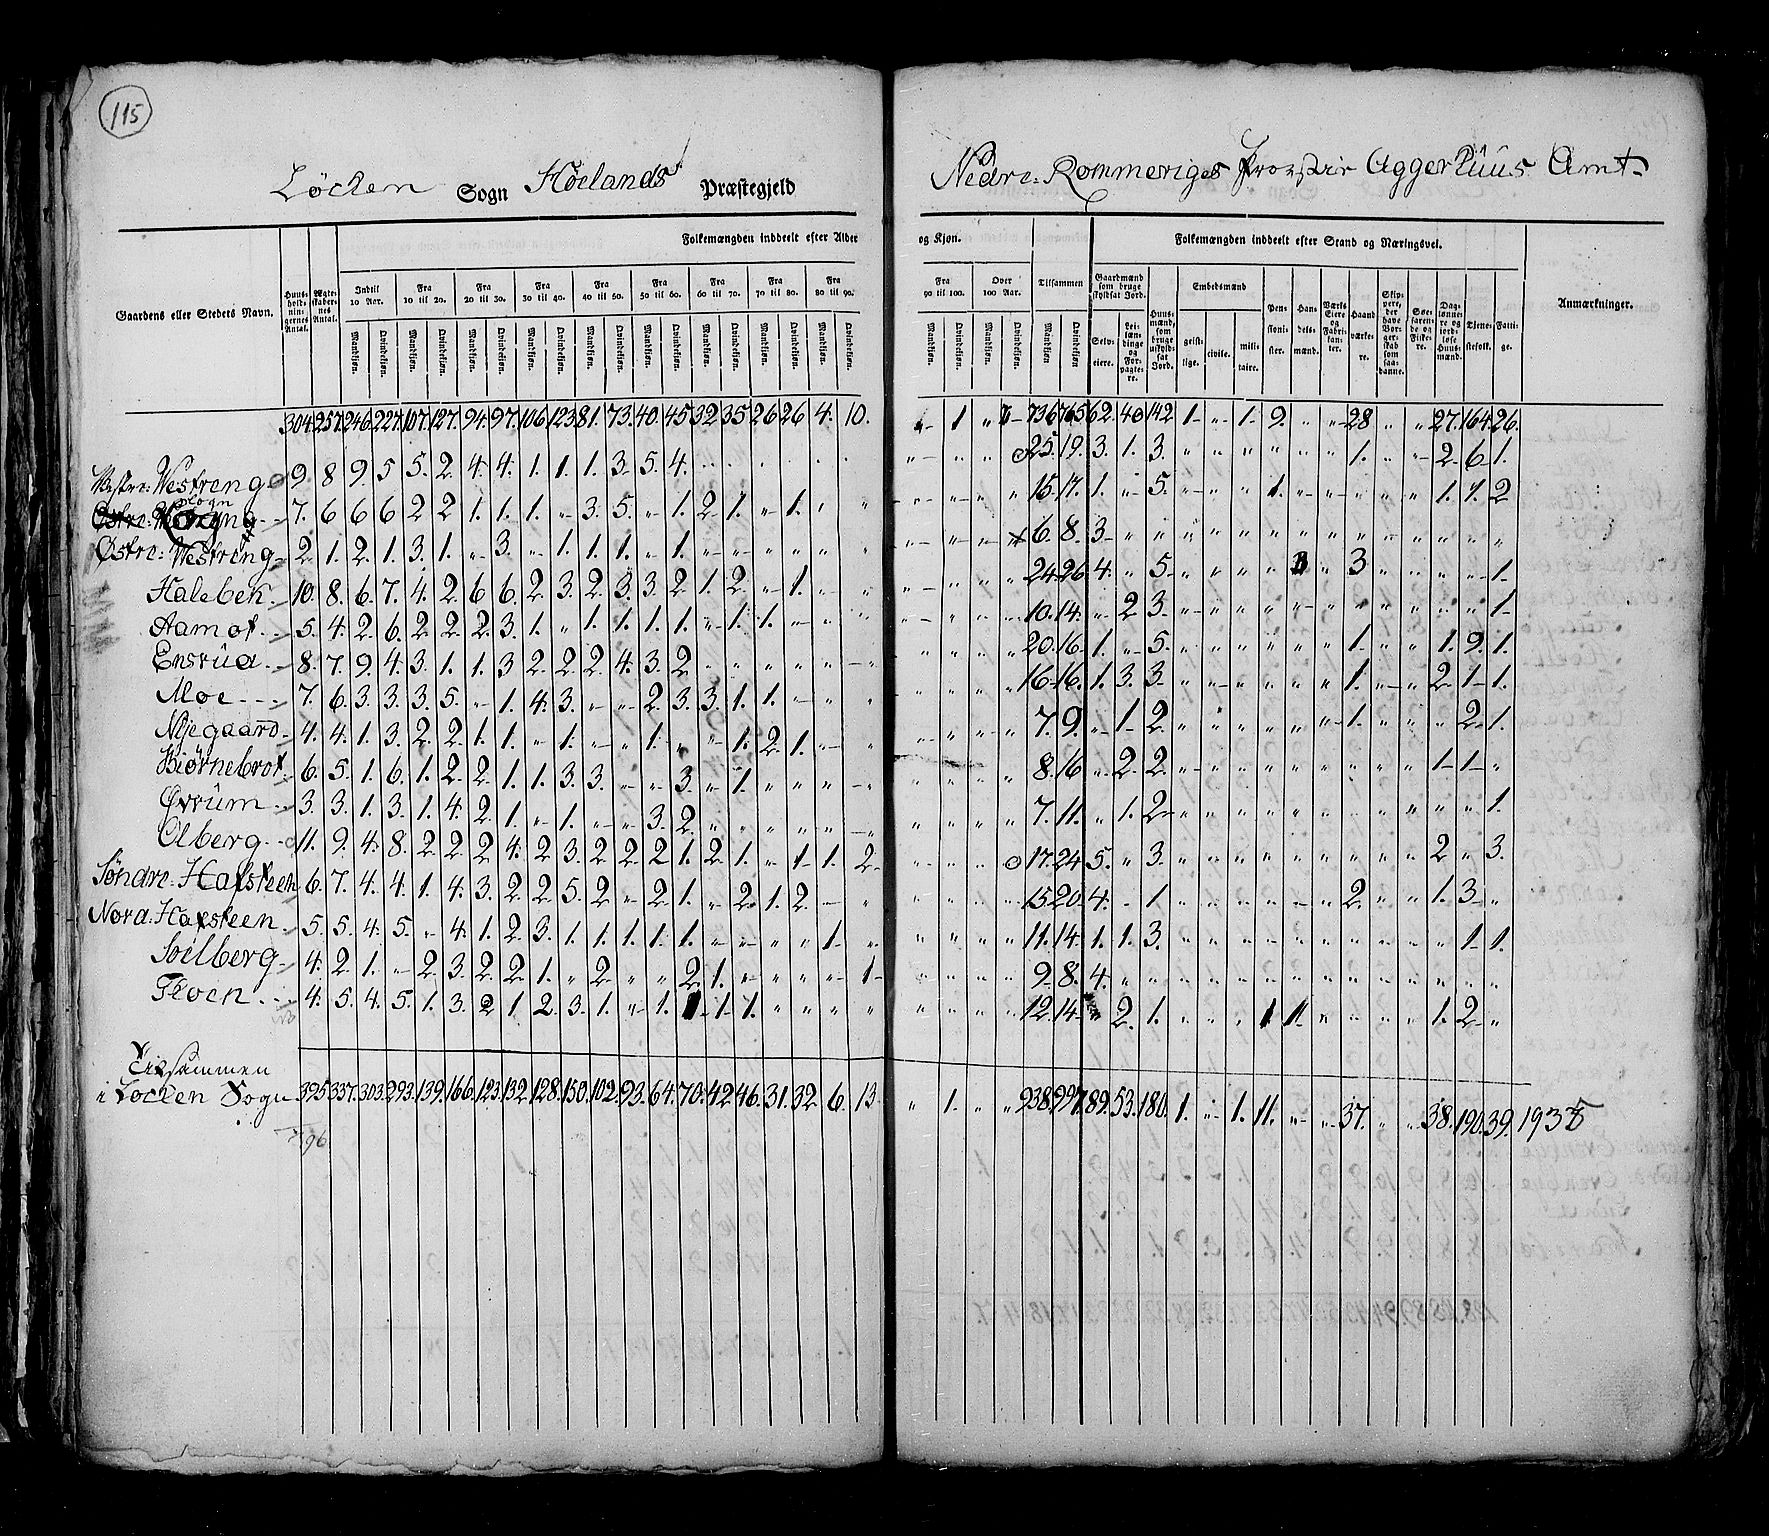 115
Löcken Sogn Höelands Præstegjeld
Nedre: Rommeriges Provstie Aggerhuus Amt.
Folkemængden inddeelt efter Alder og Kjøn.
Folkemængden inddeelt efter Stand og Næringsvei.
Gaardens eller Stedets Navn.
Huusholdningernes Antal.
Ægteskabernes Antal.
Indtil 10 Aar.
Fra 10 til 20.
Fra 20 til 30.
Fra 30 til 40.
Fra 40 til 50.
Fra 50 til 60.
Fra 60 til 70.
Fra 70 til 80.
Fra 80 til 90.
Fra 90 til 100.
Over 100 Aar.
Tilsammen
Mandkjøn. Qvindekjøn.
Gaardmænd som bruge skyldsat Jord.
Selveiere.
Leilændinge og Forpagtere.
Huusmænd, som bruge uskyldsat Jord.
Embedsmænd
geistlige. civile. militaire.
Pensionister.
Handelsmænd.
Værks Eiere og Fabrikanter.
Haandværkere.
Skippere, der have Borgerskab som saadanne.
Søefarende og Fiskere.
Daglønnere og jordløse Huusmænd.
Tjenestefolk.
Fattige.
Anmærkninger.
304. 257. 246. 227. 107. 127. 94. 97. 106. 123. 81. 73. 40. 45. 32. 35. 26. 26 4. 10. 1 736 765 62. 40 142 1 1. 9. 28 27. 164. 26.
Vestre: Westreng 9. 8 9. 5 5. 2. 4. 4. 1. 1. 1. 3. 5. 4. 25. 19. 3. 1. 3. 1. 2. 6. 1.
Sogn 7. 6 6 6 2 2 1. 1. 1. 3. 5. 1. 2. 1. 1. 15. 17. 1. 5. 1. 1. 1. 2
Østre: Westreng 2. 1. 2. 1. 3. 1. 3. 1. 1. 1. 1. 6. 8. 3
Haleben 10. 8. 6. 7. 4. 2. 6 6. 2. 3. 2. 3. 3. 2. 1. 2. 1. 24. 26 4. 5. 3 1.
Aamot 5. 4. 2. 6. 2. 2. 2. 3. 1. 1. 1. 1. 1. 1. 1. 10. 14. 2 3. 1.
Ensrûd 8. 7. 9. 4. 3. 1. 1. 3 2. 2. 2. 4. 3. 2 20. 16. 1. 5. 1. 1. 9. 1.
Moe 7. 6. 3. 3. 3. 5. 1. 4. 3. 2. 3. 3. 1. 1. 16. 16. 1. 3. 3. 1. 2. 1. 1.
Nyegaard 4. 4. 1. 3. 2. 2. 1. 1. 1. 1. 1. 2. 1. 7. 9. 1. 2. 1. 2. 1.
Biörnebrot 6. 5. 1. 6. 1. 2. 2. 1. 1. 3 3. 3. 1. 8. 16 2. 2. 1. 1.
Övrûm 3. 3. 1. 3. 1. 4. 2. 1. 1. 3. 2. 7. 11. 1. 2 1.
Olberg 11. 9. 4. 8. 2. 2. 2. 4. 2 3. 2. 2. 2. 1. 2. 1. 1. 1. 2. 17. 24 5. 3. 2. 3.
Söndre: Hafsteen 6. 7. 4. 4. 1. 4. 3. 2. 2. 5. 2. 2. 1. 2. 1. 2. 15. 20. 4. 1 2. 1. 3.
Nora: Hafsteen 5. 5. 4. 5. 4. 1. 2. 3. 1. 1. 1. 1. 1. 1. 11. 14. 1. 1. 3. 1. 1.
Soelberg 4. 2. 1. 2. 3. 2. 2. 1. 2. 2. 1. 1. 9. 8. 4.
4. 5. 4. 5. 1. 3. 2 1. 2. 3. 1. 1. 1 1. 1. 12. 14. 2. 1. 1 1. 1. 2.
Tilsammen
i Löcken Sogn 395. 337. 303. 293. 139. 166. 123. 132. 128. 150. 102. 93. 64. 70. 42. 46. 31. 32. 6. 13 1. 938. 997. 89. 53. 180. 1. 1. 11. 37. 38. 190. 39. 1935